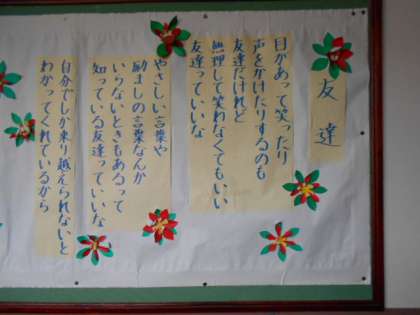 友達
目があって笑ったり
声をかけたりするのも
友達だけれど
無理して笑わなくてもいい
友達っていいな
やさしい言葉や
励ましの言葉なんか
いらないときもあるって
知っている友達っていいな
自分でしか乗り越えられないと
わかってくれているから